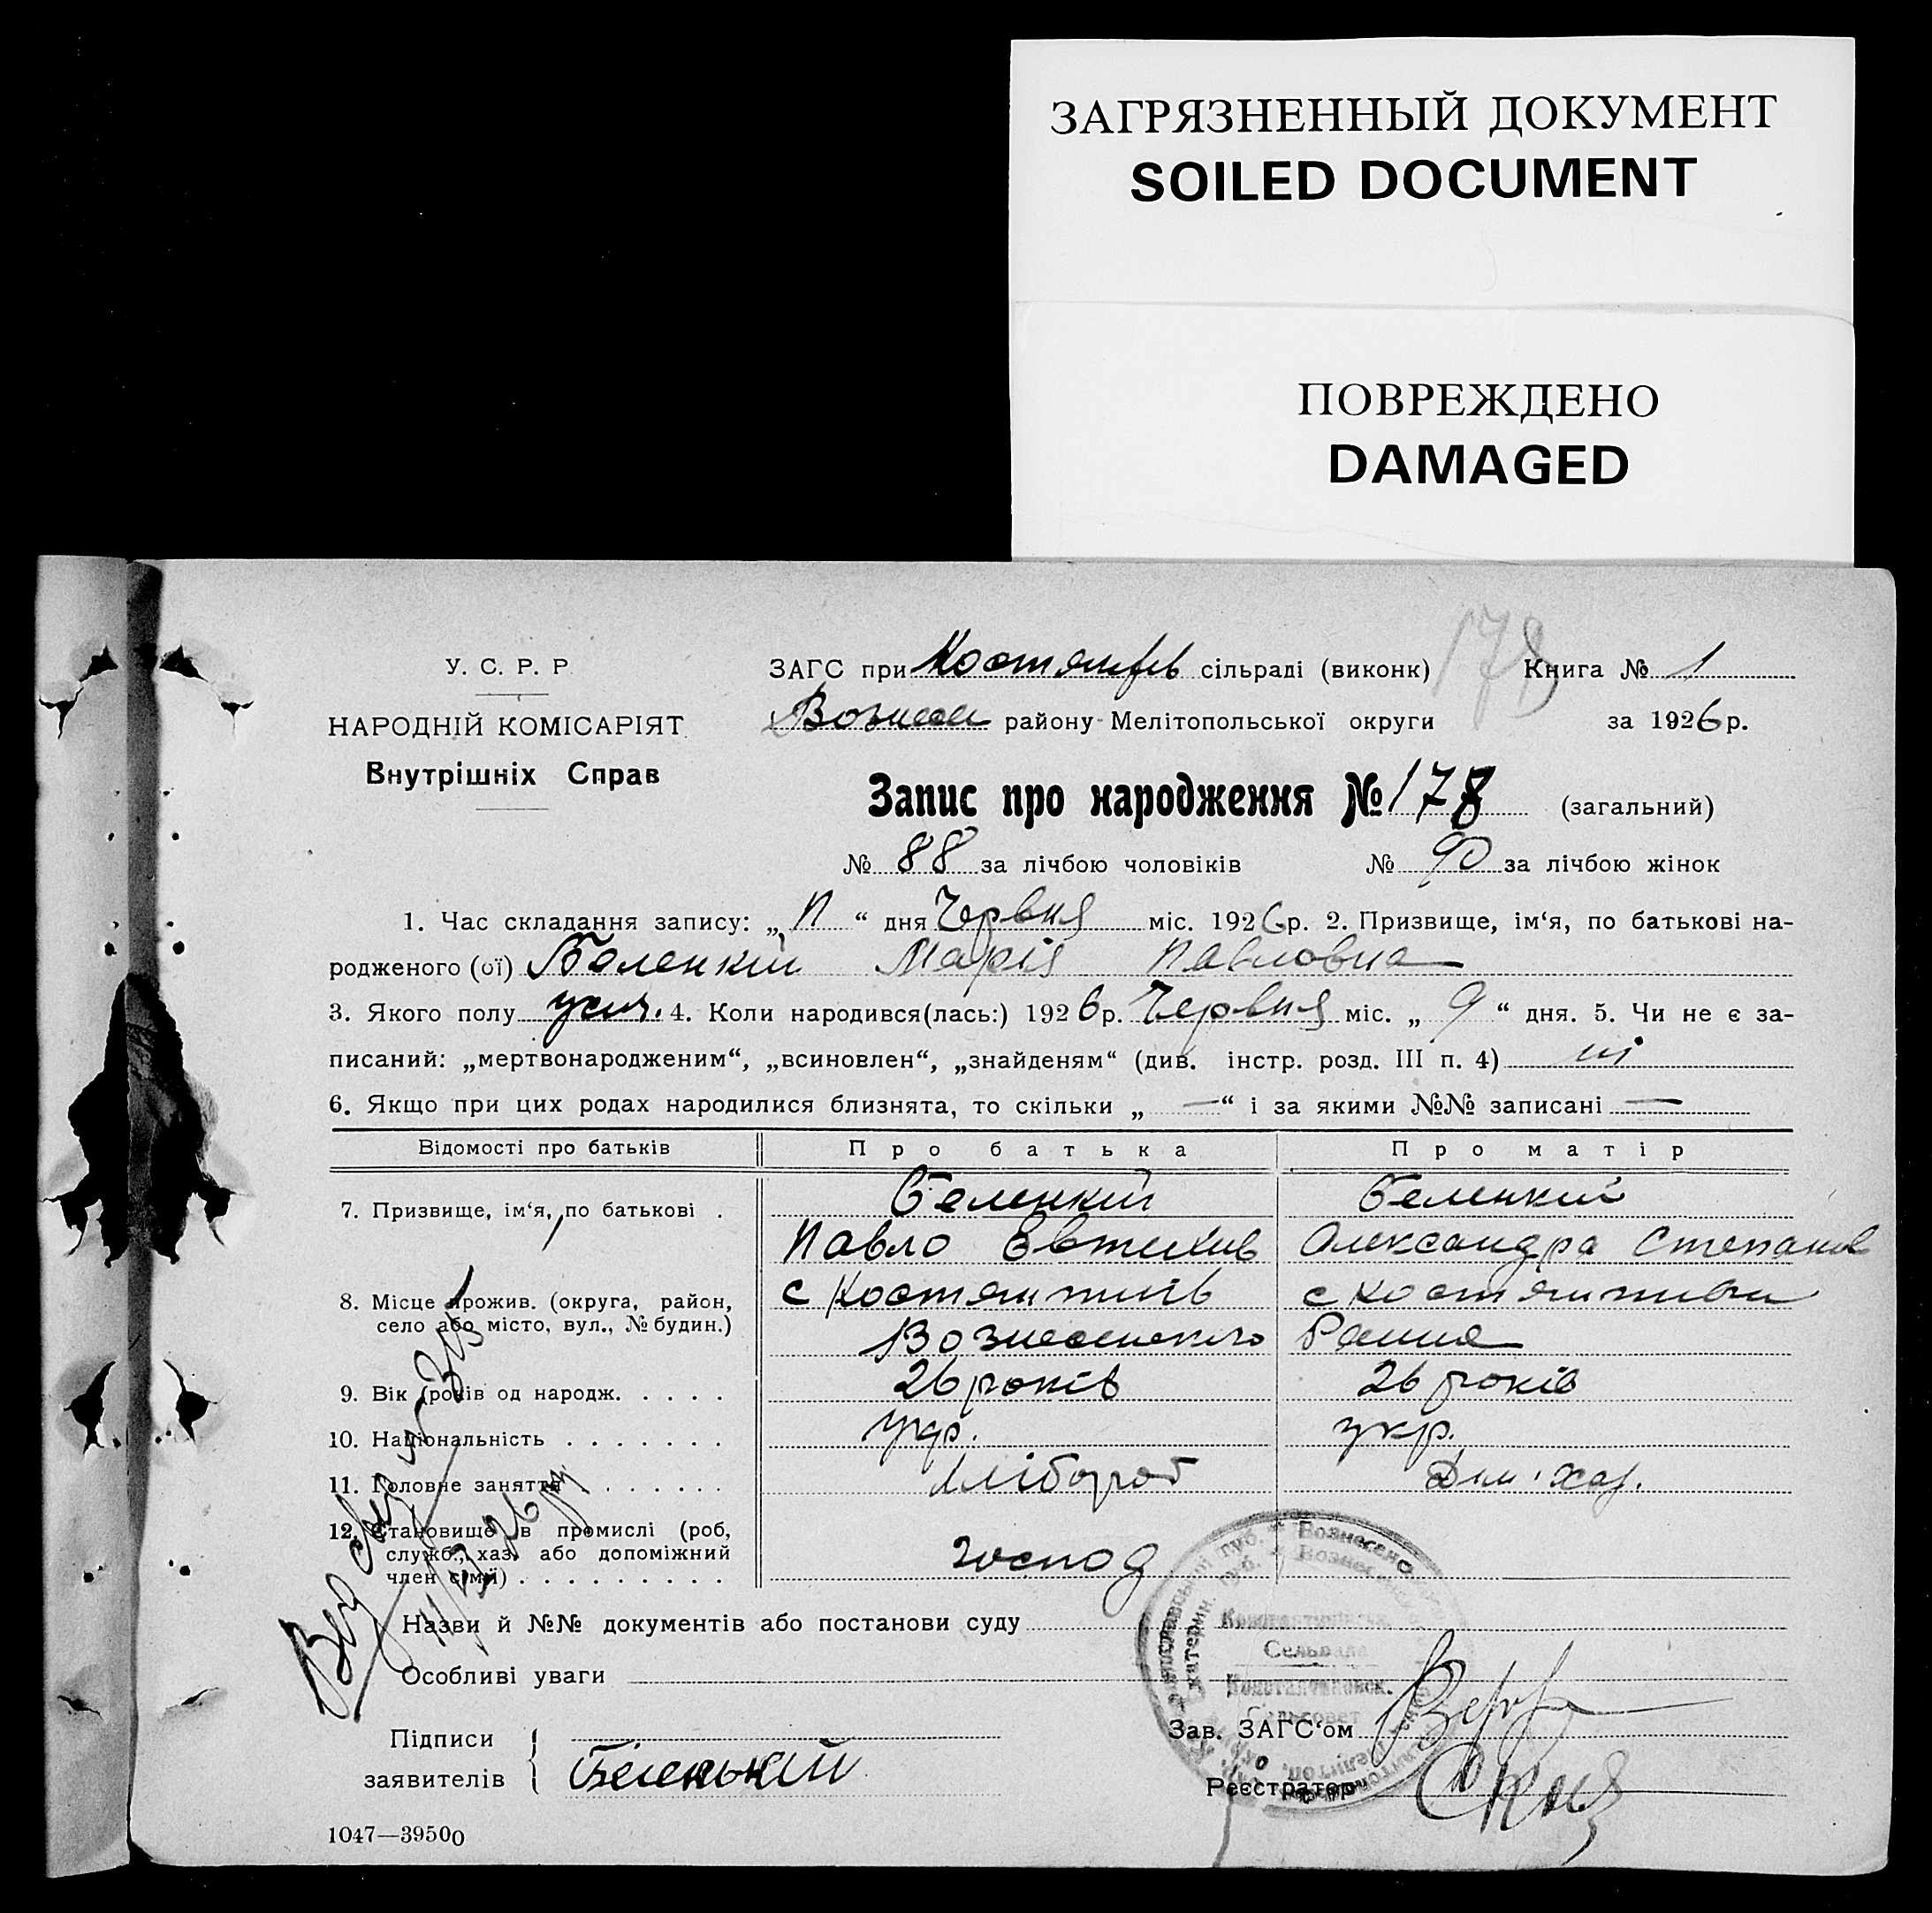 ЗАГРЯЗНЕННЫЙ ДОКУМЕНТ
SOILED DOCUMENT
ПОВРЕЖДЕНО
DAMAGED
178
У. С. Р. Р.
НАРОДНІЙ КОМІСАРІЯТ
Внутрішніх Справ
ЗАГС при сільраді (виконк) Книга № 1
району Мелітопольської округи за 1926 р.
Запис про народження № 178 (загальний)
№ 88 за лічбою чоловіків № 90 за лічбою жінок
1. Час складання запису: „ “ дня Червня міс. 1926 р. 2. Призвище, ім‘я, по батькові на-
родженого (ої) Беленкий Марія Павловна
3. Якого полу 4. Коли народився(лась:) 1926 р. Червня міс. „ 9 “ дня. 5. Чи не є за-
писаний: „мертвонародженим“, „всиновлен“, „знайденям“ (див. інстр. розд. III п. 4) ні
6. Якщо при цих родах народилися близнята, то скільки „ — “ і за якими №№ записані —
Відомості про батьків Про батька Про матір
7. Призвище, ім‘я, по батькові . Беленкий Беленкий
Павло Евтихив Олександра Степанов
8. Місце прожив. (округа, район, село або місто, вул., № будин.) с с
Вознесенского
9. Вік (років од народж. . . . . 26 років 26 років
10. Національність . . . . . . . Укр. укр.
11. Головне заняття . . . . . . . Хлібороб Дом. хаз.
12. Становище в промислі (роб,
служб., хаз. або допоміжний
член сім‘ї) . . . . . . . . . господ
Назви й №№ документів або постанови суду
Особливі уваги
Константиновск.
Сельсовет
Підписи
заявителів { Беленький
Зав. ЗАГС‘ом
Реєстратор
1047—39500